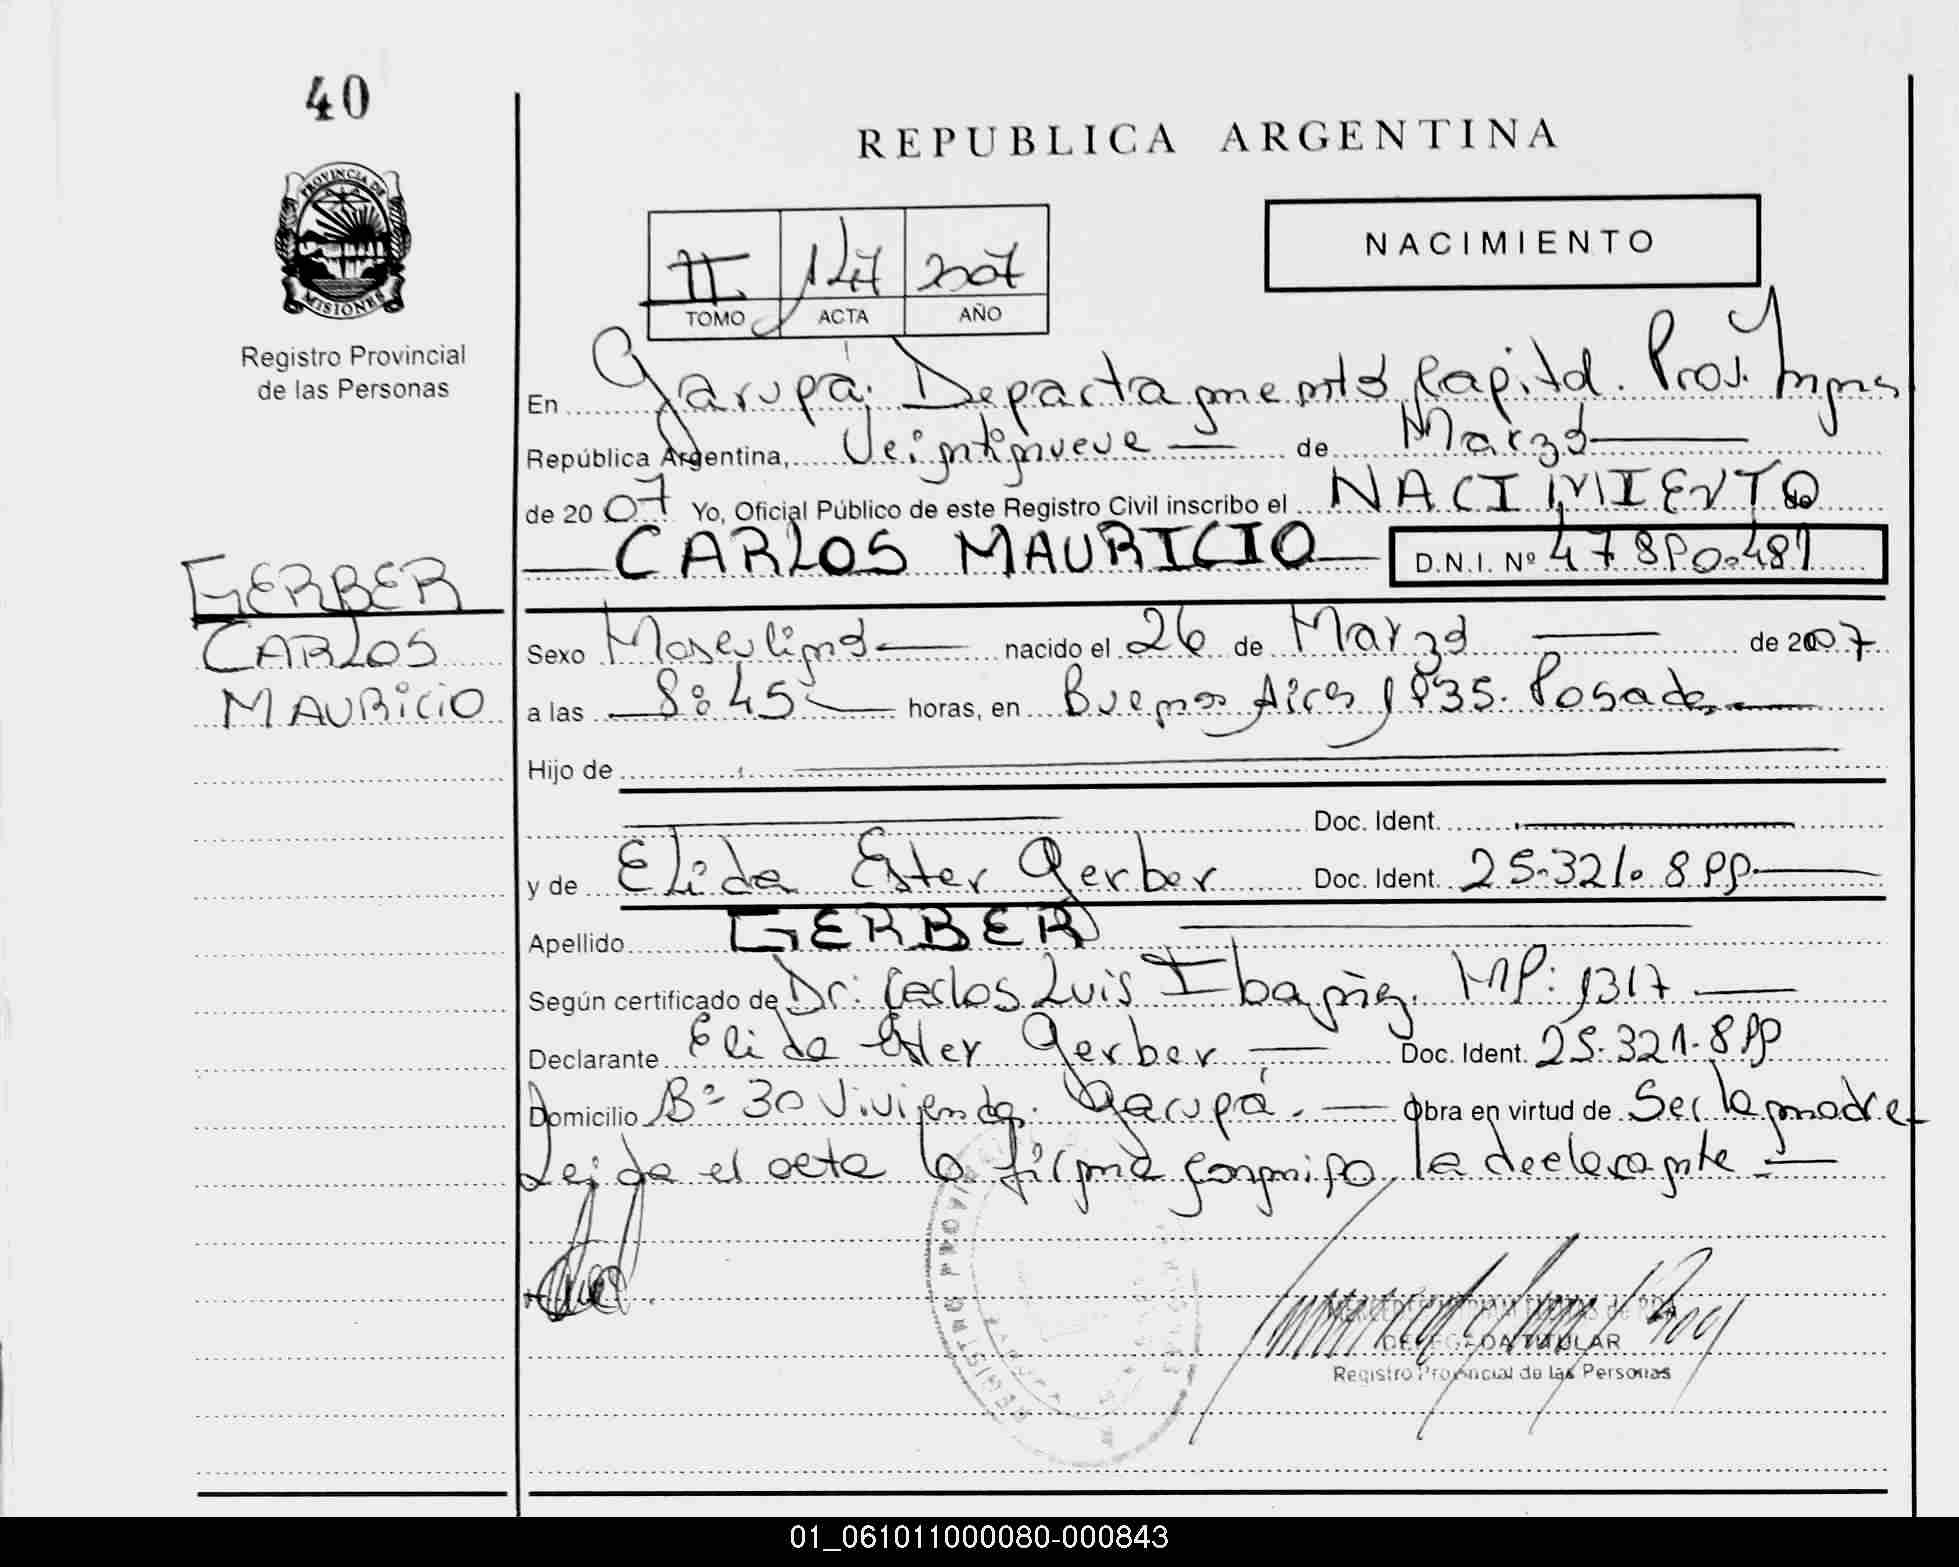 40
REPUBLICA ARGENTINA
PROVINCIA DE
MISIONES
Registro Provincial
de las Personas
NACIMIENTO
II 147 2007
TOMO ACTA AÑO
En Garupá, Departamento Capital. Prov. Mnes
República Argentina, Veintinueve de Marzo
de 2007 Yo, Oficial Público de este Registro Civil inscribo el NACIMIENTO de
CARLOS MAURICIO D.N.I. Nº 47.890.481
GERBER
CARLOS
MAURICIO
Sexo Masculino nacido el 26 de Marzo de 2007
a las 8:45 horas, en Buenos Aires 1935. Posadas
Hijo de
Doc. Ident.
y de Elida Ester Gerber Doc. Ident. 25.321.899
Apellido GERBER
Según certificado de Dr. Carlos Luis Ibañez. MP: 1317
Declarante Elida Ester Gerber Doc. Ident. 25.321.899
Domicilio Bº 30 Vivienda. Garupá. Obra en virtud de Ser la madre
Leida el acta la firma conmigo la declarante
REGISTRO PROVINCIAL
DELEGADA TITULAR
Registro Provincial de las Personas
01_061011000080-000843